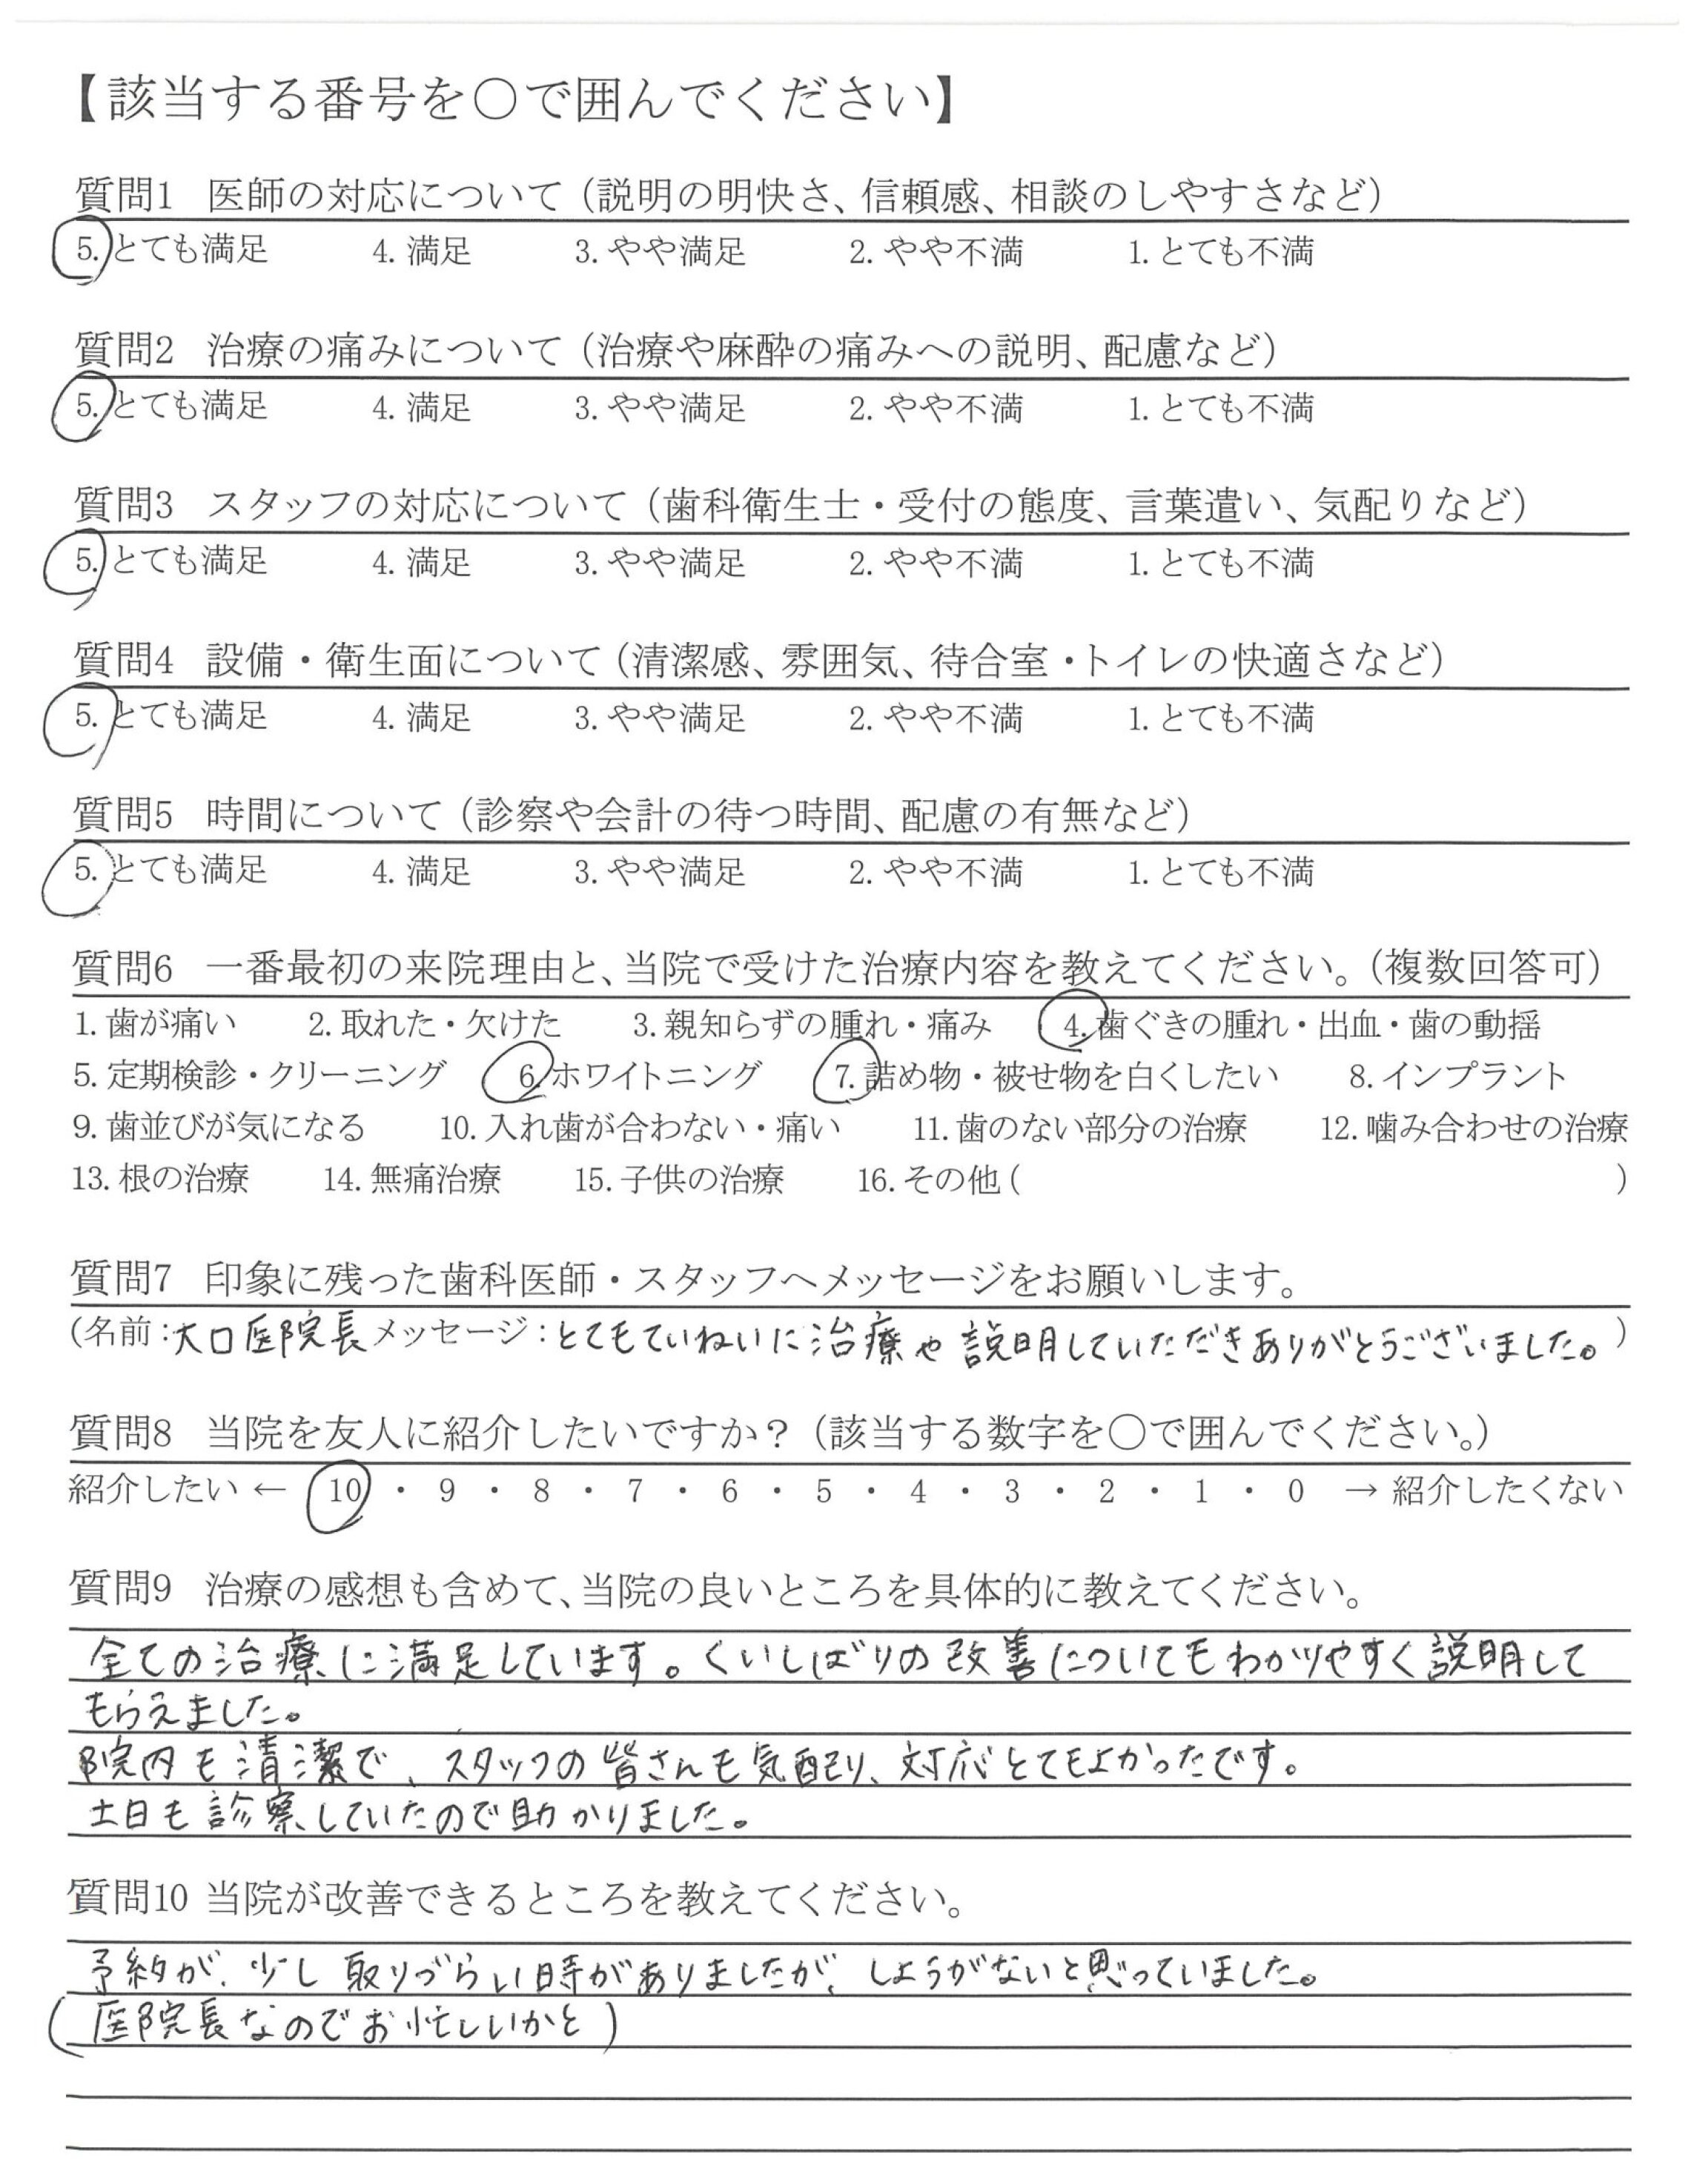 【該当する番号を○で囲んでください】
質問1 医師の対応について（説明の明快さ、信頼感、相談のしやすさなど）
5. とても満足 4. 満足 3. やや満足 2. やや不満 1. とても不満
質問2 治療の痛みについて（治療や麻酔の痛みへの説明、配慮など）
5. とても満足 4. 満足 3. やや満足 2. やや不満 1. とても不満
質問3 スタッフの対応について（歯科衛生士・受付の態度、言葉遣い、気配りなど）
5. とても満足 4. 満足 3. やや満足 2. やや不満 1. とても不満
質問4 設備・衛生面について（清潔感、雰囲気、待合室・トイレの快適さなど）
5. とても満足 4. 満足 3. やや満足 2. やや不満 1. とても不満
質問5 時間について（診察や会計の待つ時間、配慮の有無など）
5. とても満足 4. 満足 3. やや満足 2. やや不満 1. とても不満
質問6 一番最初の来院理由と、当院で受けた治療内容を教えてください。（複数回答可）
1. 歯が痛い 2. 取れた・欠けた 3. 親知らずの腫れ・痛み 4. 歯ぐきの腫れ・出血・歯の動揺
5. 定期検診・クリーニング 6. ホワイトニング 7. 詰め物・被せ物を白くしたい 8. インプラント
9. 歯並びが気になる 10. 入れ歯が合わない・痛い 11. 歯のない部分の治療 12. 噛み合わせの治療
13. 根の治療 14. 無痛治療 15. 子供の治療 16. その他 ( )
質問7 印象に残った歯科医師・スタッフへメッセージをお願いします。
(名前：大口医院長 メッセージ：とてもていねいに治療や説明していただきありがとうございました。)
質問8 当院を友人に紹介したいですか？（該当する数字を○で囲んでください。）
紹介したい ← 10 ・ 9 ・ 8 ・ 7 ・ 6 ・ 5 ・ 4 ・ 3 ・ 2 ・ 1 ・ 0 → 紹介したくない
質問9 治療の感想も含めて、当院の良いところを具体的に教えてください。
全ての治療に満足しています。くいしばりの改善についてもわかりやすく説明して
もらえました。
院内も清潔で、スタッフの皆さんも気配り、対応とてもよかったです。
土日も診察していたので助かりました。
質問10 当院が改善できるところを教えてください。
予約が、少し取りづらい時がありましたが、しょうがないと思っていました。
(医院長なのでお忙しいかと)